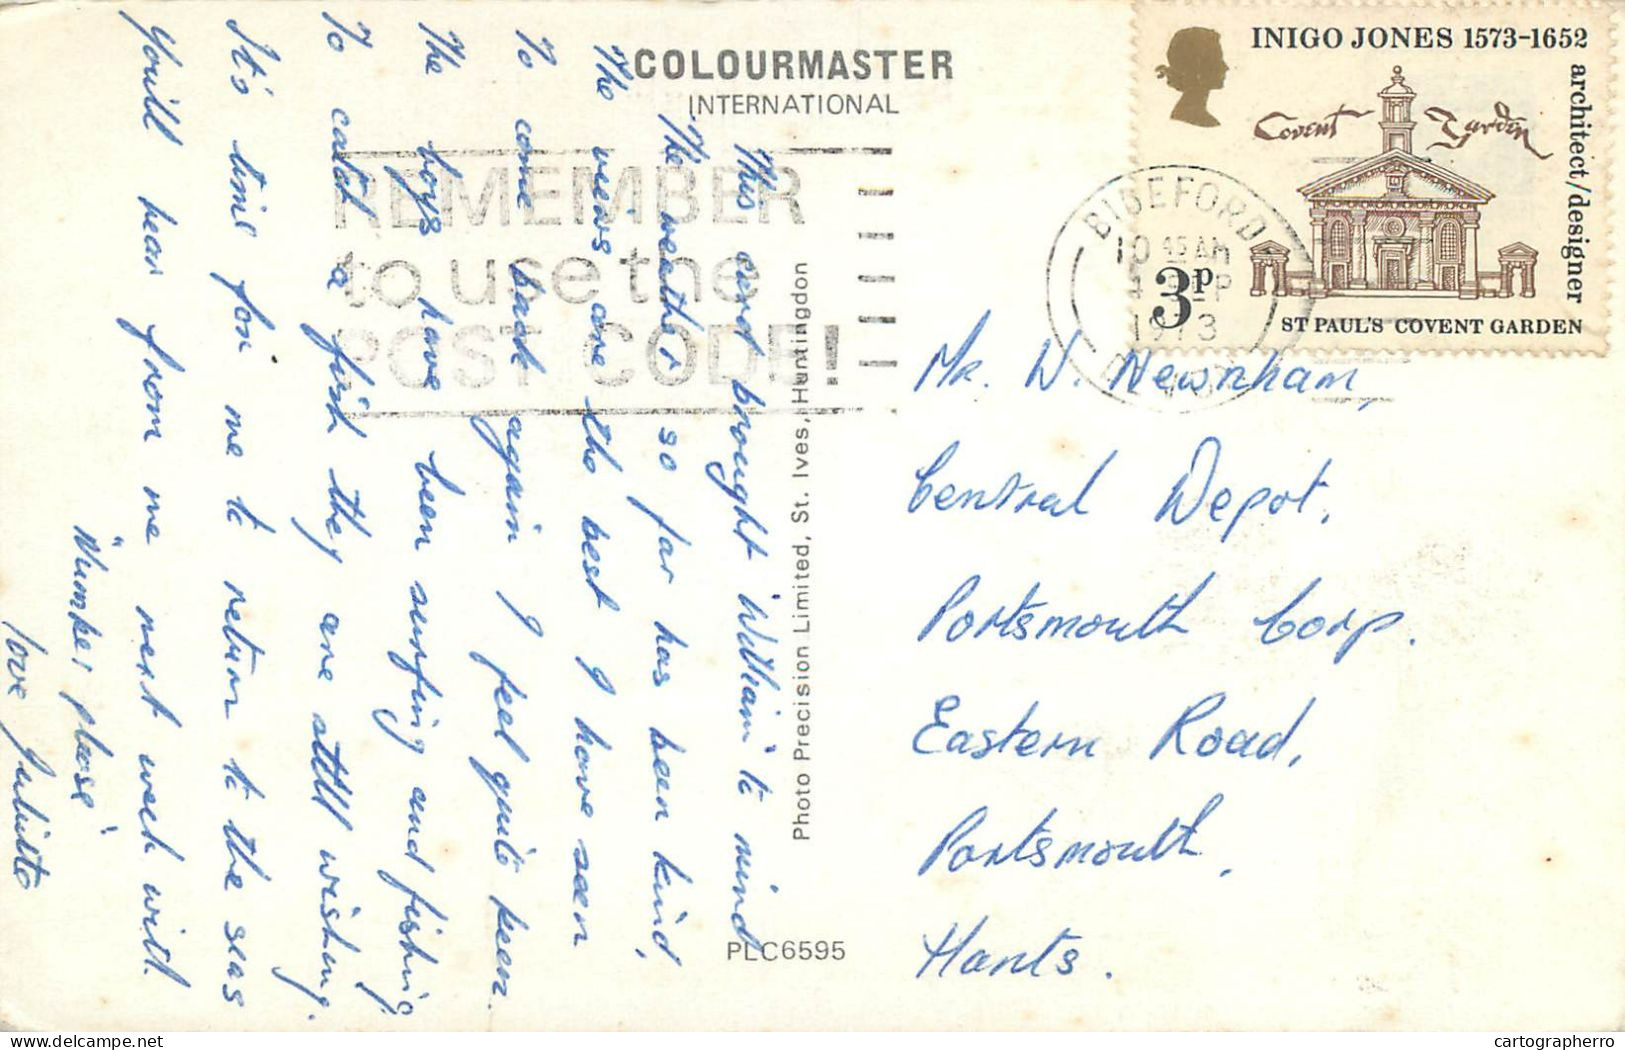 COLOURMASTER
INTERNATIONAL
This card brought 'William' to mind
The weather so far has been kind,
The veiws are the best I have seen
To come back again I feel quite keen.
The boys have been surfing and fishing,
To catch a fish they are still wishing.
It's time for me to return to the seas
You'll hear from me next week with
"Number please"
love Juliette
REMEMBER
to use the
POST CODE!
Photo Precision Limited, St. Ives, Huntingdon
PLC6595
INIGO JONES 1573-1652
architect/designer
Covent Garden
3p
ST PAUL'S COVENT GARDEN
BIDEFORD
10 45 AM
4 SEP
1973
DEVON
Mr. W. Newnham,
Central Depot,
Portsmouth Corp.
Eastern Road,
Portsmouth,
Hants.
cartographerro